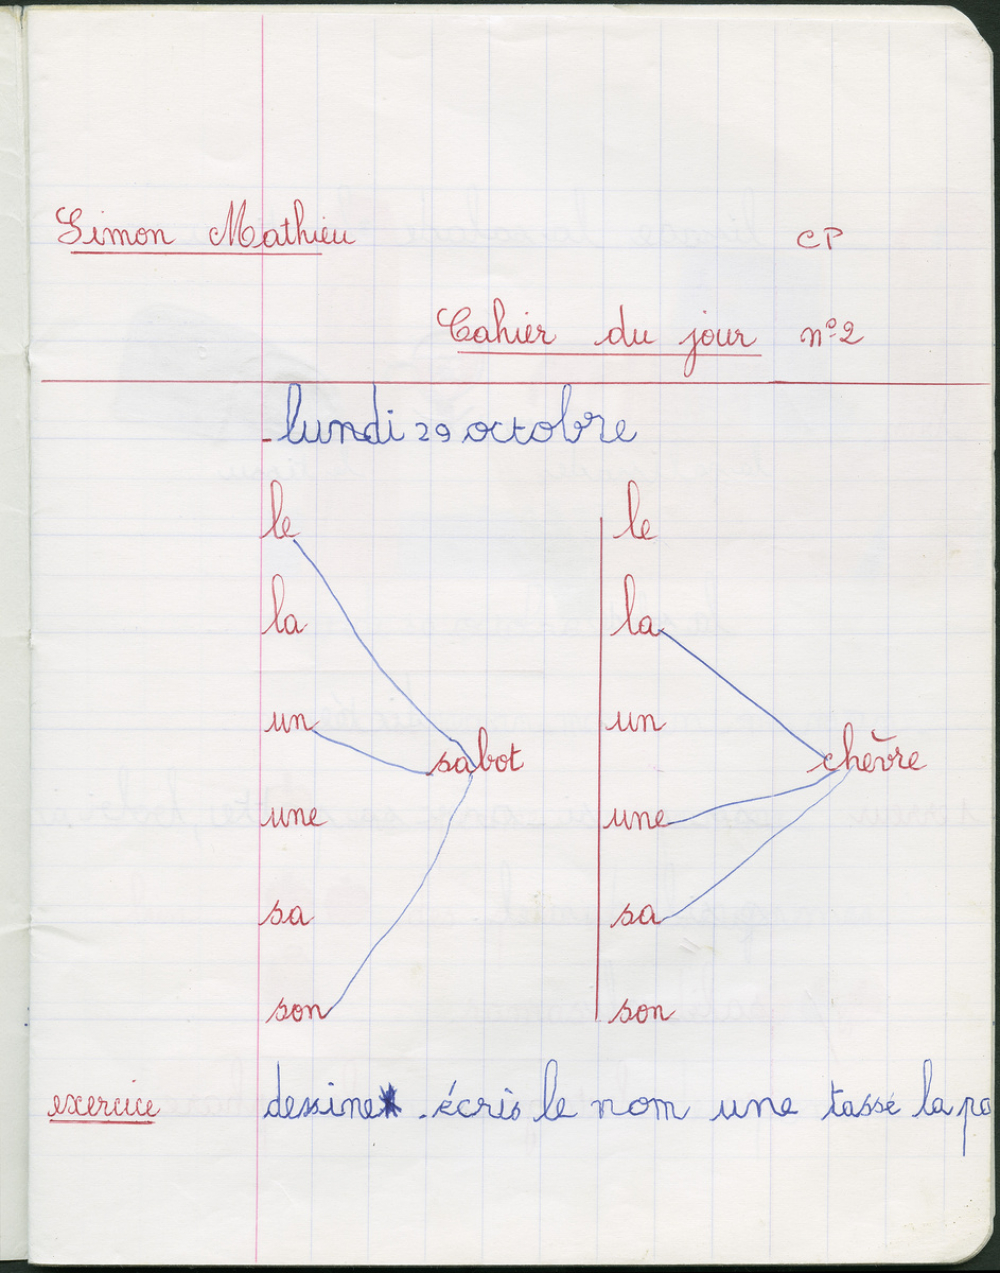 Simon Mathieu CP
Cahier du jour n°2
lundi 29 octobre
le
la
un
sabot
une
sa
son
le
la
un
chèvre
une
sa
son
exercice dessine . écris le nom une tasse la po